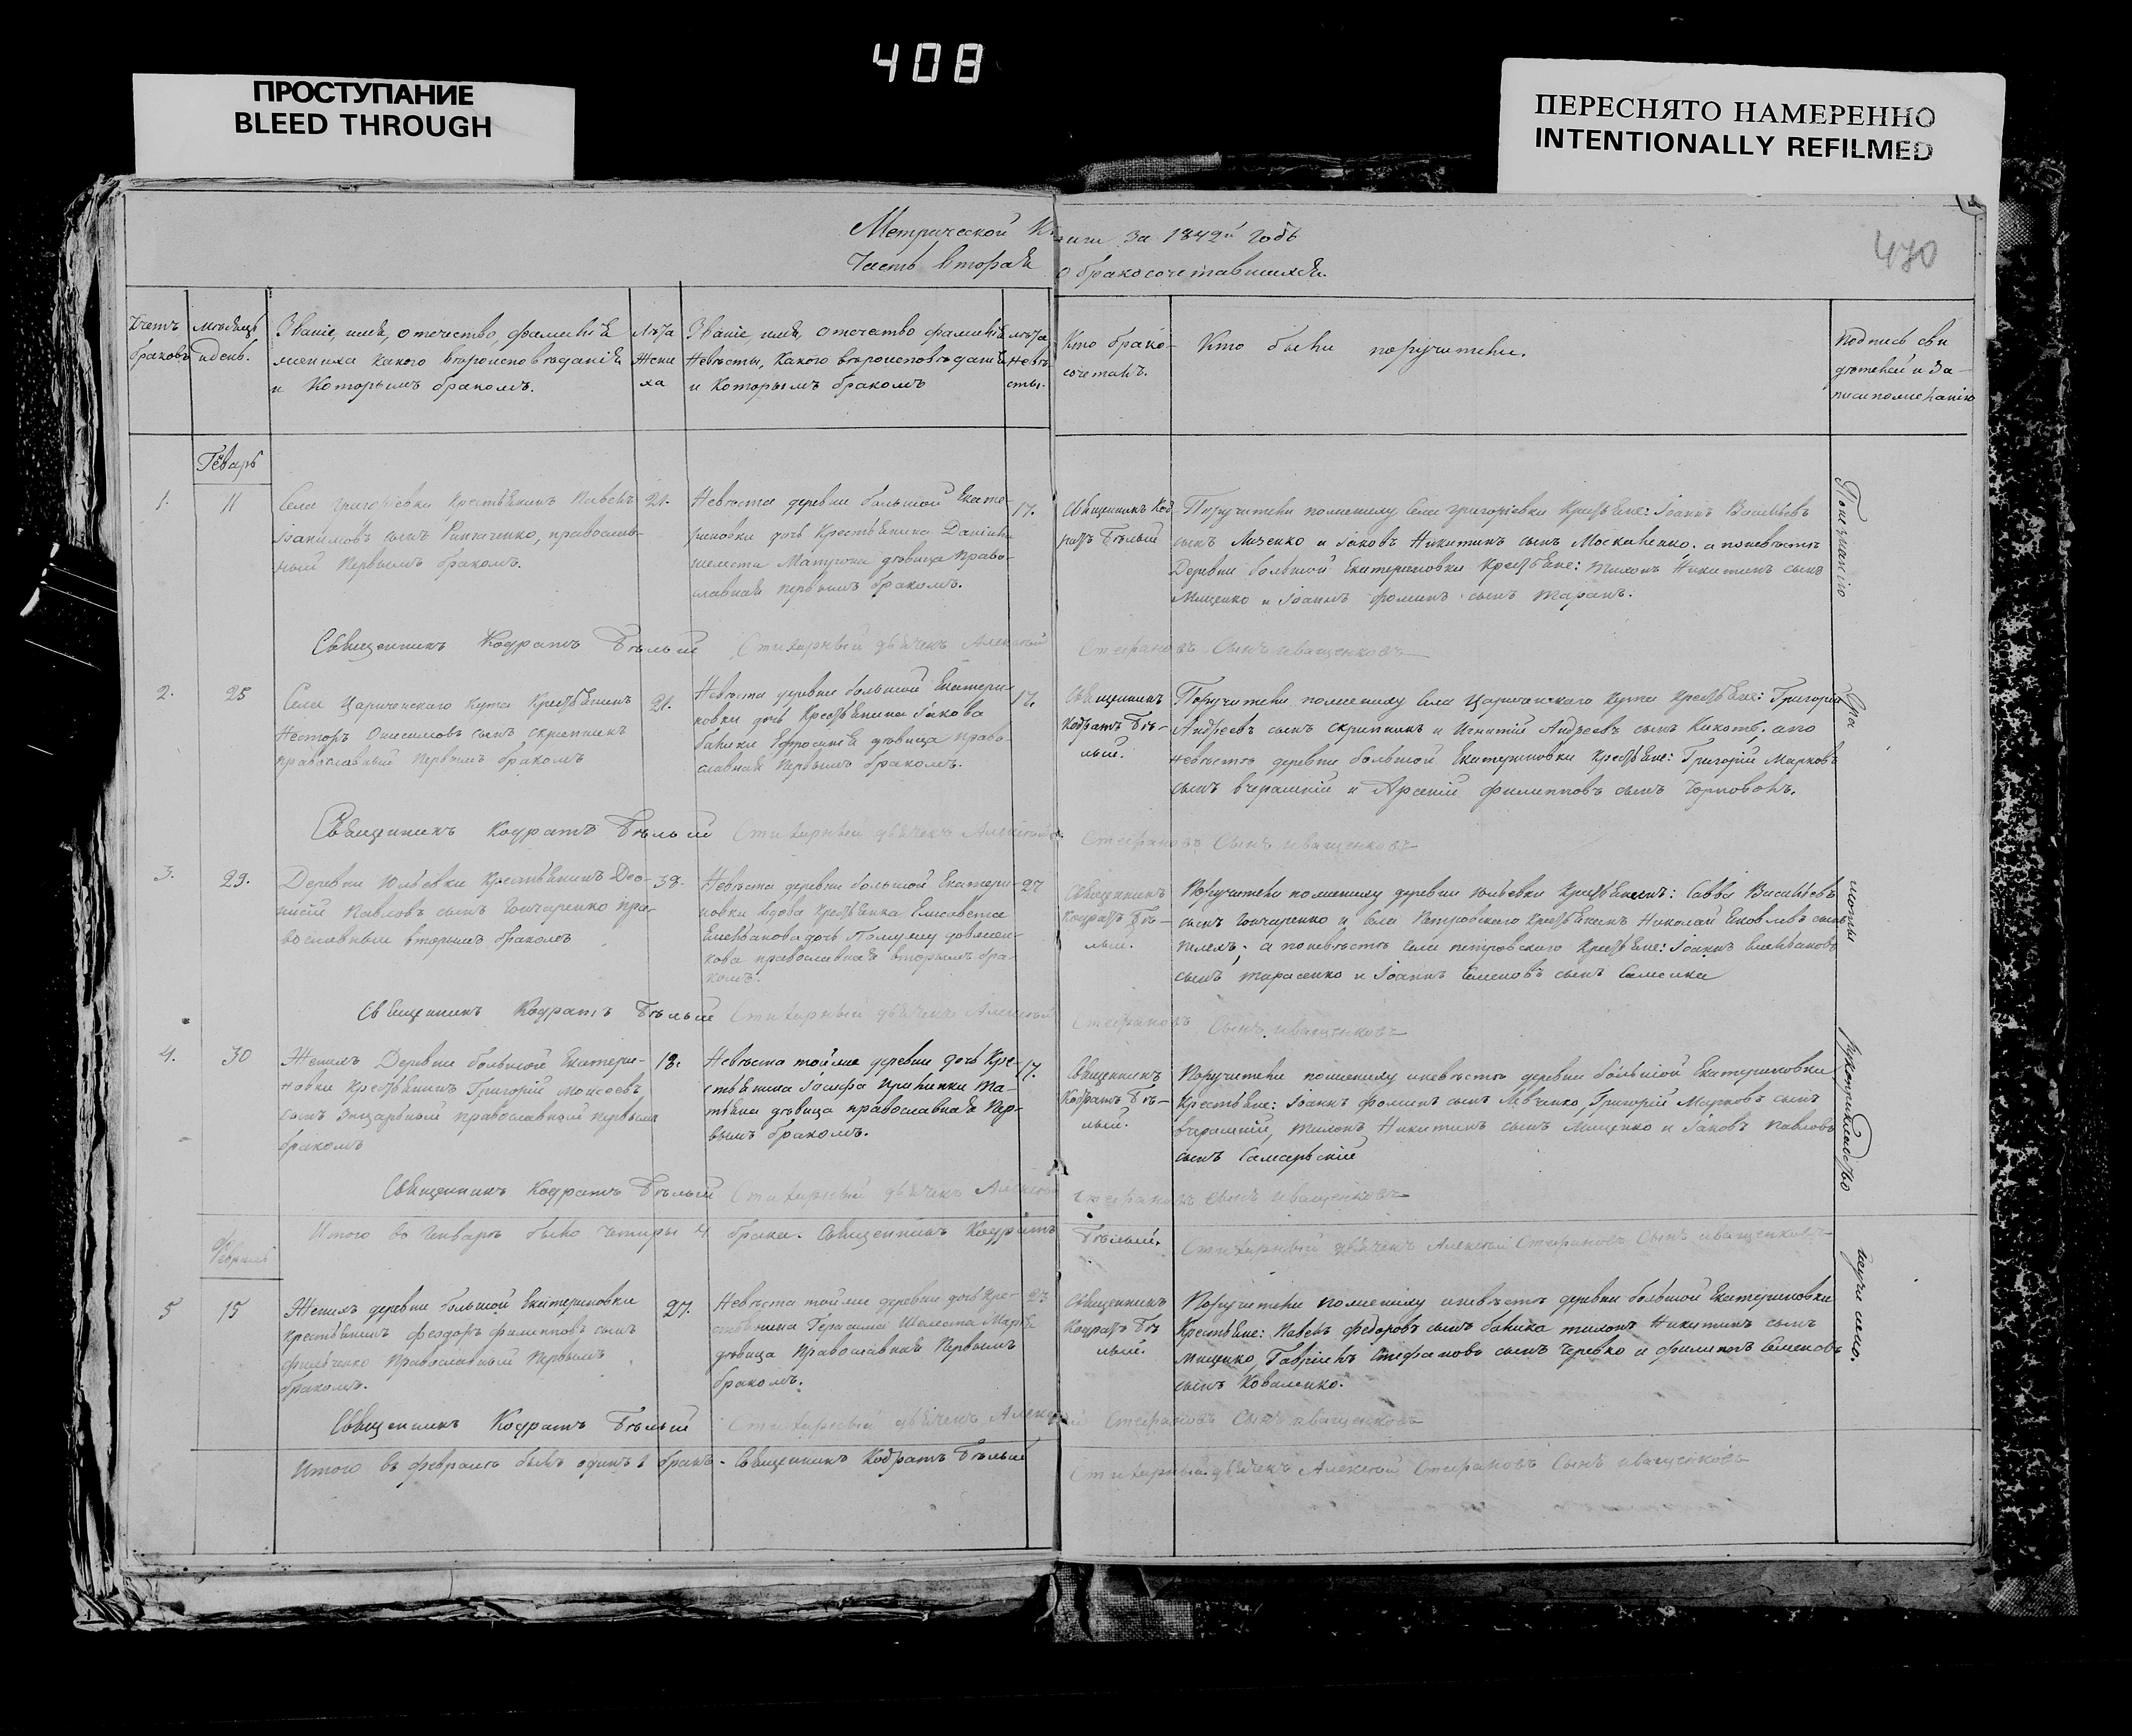 408
ПРОСТУПАНИЕ
BLEED THROUGH
ПЕРЕСНЯТО НАМЕРЕННО
INTENTIONALLY REFILMED
470
Метрической Книги за 1842й годъ
Часть вторая о бракосочетавшихся.
Счетъ браковъ
Мѣсяцъ и день.
Званіе, имя, отечество, фамилія
жениха какого вѣроисповѣданія
и которымъ бракомъ.
Лѣта
Жени
ха
Званіе имя, отечество фамилія
Невѣсты, какого вѣроисповѣданія
и которымъ бракомъ
лѣта
Невѣ
сты.
Кто брако-
сочеталъ.
Кто были поручители.
Подпись сви
дѣтелей и за-
писи по желанію
Генварь
1.
11
Села Григорьевки Крестьянинъ Павелъ
Іоакимовъ сынъ православ-
ный Первымъ бракомъ.
21.
Невѣста деревни большой Екате-
риновки дочь Крестьянина Даніила
шелеста Матрона дѣвица Право-
славная первымъ бракомъ.
17.
Священникъ Код-
ратъ Бѣлый
Поручители по жениху Села Григорьевки Крестьяне: Іоаннъ Васильевъ
сынъ Лизенко и Іаковъ Никитинъ сынъ Москаленко. а по невѣстѣ
Деревни большой Екатериновки Крестьяне: Тихонъ Никитинъ сынъ
Мищенко и Іоаннъ Фоминъ сынъ Таранъ.
Священникъ Кодратъ Бѣлый Стихарный дьячекъ Алексѣй Стефановъ Сынъ Иващенковъ
2.
25
Села Царичанскаго Кута Крестьянинъ
Несторъ Онисимовъ сынъ скрипникъ
православный Первымъ бракомъ
21.
Невѣста деревни большой Екатери-
новки дочь Крестьянина Іакова
балики Ефросинія дѣвица право-
славная Первымъ бракомъ.
17.
Священникъ
Кодратъ Бѣ-
лый.
Поручители по жениху Села Царичанскаго Кута Крестьяне: Григорій
Андреевъ сынъ Скрипникъ и Игнатій Андреевъ сынъ Кикоть. а по
невѣстѣ деревни большой Екатериновки Крестьяне: Григорій Марковъ
сынъ вчерашній и Арсеній филипповъ сынъ Чорноволъ.
Священникъ Кодратъ Бѣлый Стихарный дьячекъ Алексѣй Стефановъ Сынъ Иващенковъ
3.
29.
Деревни Юльевки Крестьянинъ Део-
нисій Павловъ сынъ Гончаренко пра-
вославный вторымъ бракомъ
39.
Невѣста деревни большой Екатери-
новки вдова Крестьянка Елисавета
Емельянова дочь По мужу довжен-
кова православная вторымъ бра-
комъ.
27
Священникъ
Кодратъ Бѣ-
лый.
Поручители по жениху деревни Юльевки Крестьянинъ: Савва Васильевъ
сынъ Гончаренко и Села Петровскаго Крестьянинъ Николай Яковлевъ сынъ
а по невѣстѣ Села петровскаго Крестьяне: Іоаннъ Емельановъ
сынъ тарасенко и Іоаннъ Семеновъ сынъ Самойла
Священникъ Кодратъ Бѣлый Стихарный дьячекъ Алексѣй Стефановъ Сынъ Иващенковъ
4.
30
Женихъ Деревни большой Екатери-
новки Крестьянинъ Григорій Моисеевъ
сынъ православный первымъ
бракомъ
18.
Невѣста той же деревни дочь Кре-
стьянина Іосифа Та-
тьяна дѣвица православная Пер-
вымъ бракомъ.
17.
Священникъ
Кодратъ Бѣ-
лый.
Поручители по жениху и невѣстѣ деревни большой Екатериновки
Крестьяне: Іоаннъ Фоминъ сынъ Левченко, Григорій Марковъ сынъ
вчерашній, Тихонъ Никитинъ сынъ Мищенко и Іаковъ Павловъ
сынъ Самарскій
Священникъ Кодратъ Бѣлый Стихарный дьячекъ Алексѣй Стефановъ сынъ Иващенковъ
Итого въ Генварѣ было четыри 4 брака. Священникъ Кодратъ Бѣлый. Стихарный дьячекъ Алексѣй Стефановъ Сынъ Иващенковъ
Февраль
5
15
Женихъ деревни большой Екатериновки
крестьянинъ феодоръ филипповъ сынъ
фильченко Православный Первымъ
бракомъ.
27.
Невѣста той же деревни дочь Кре-
стьянина Герасима Шелеста Марія
дѣвица Православная Первымъ
бракомъ.
23
Священникъ
Кодратъ Бѣ
лый.
Поручители по жениху и невѣстѣ деревни большой Екатериновки
Крестьяне: Павелъ федоровъ сынъ балика тихонъ Никитинъ сынъ
мищенко, Гавріилъ Стефановъ сынъ Черевко и филиппъ Семеновъ
сынъ Коваленко.
Священникъ Кодратъ Бѣлый Стихарный дьячекъ Алексѣй Стефановъ Сынъ Иващенковъ
Итого въ февралѣ былъ одинъ 1 бракъ. Священникъ Кодратъ Бѣлый Стихарный дьячекъ Алексѣй Стефановъ Сынъ Иващенковъ
По незнанію гра моты рукоприкладство